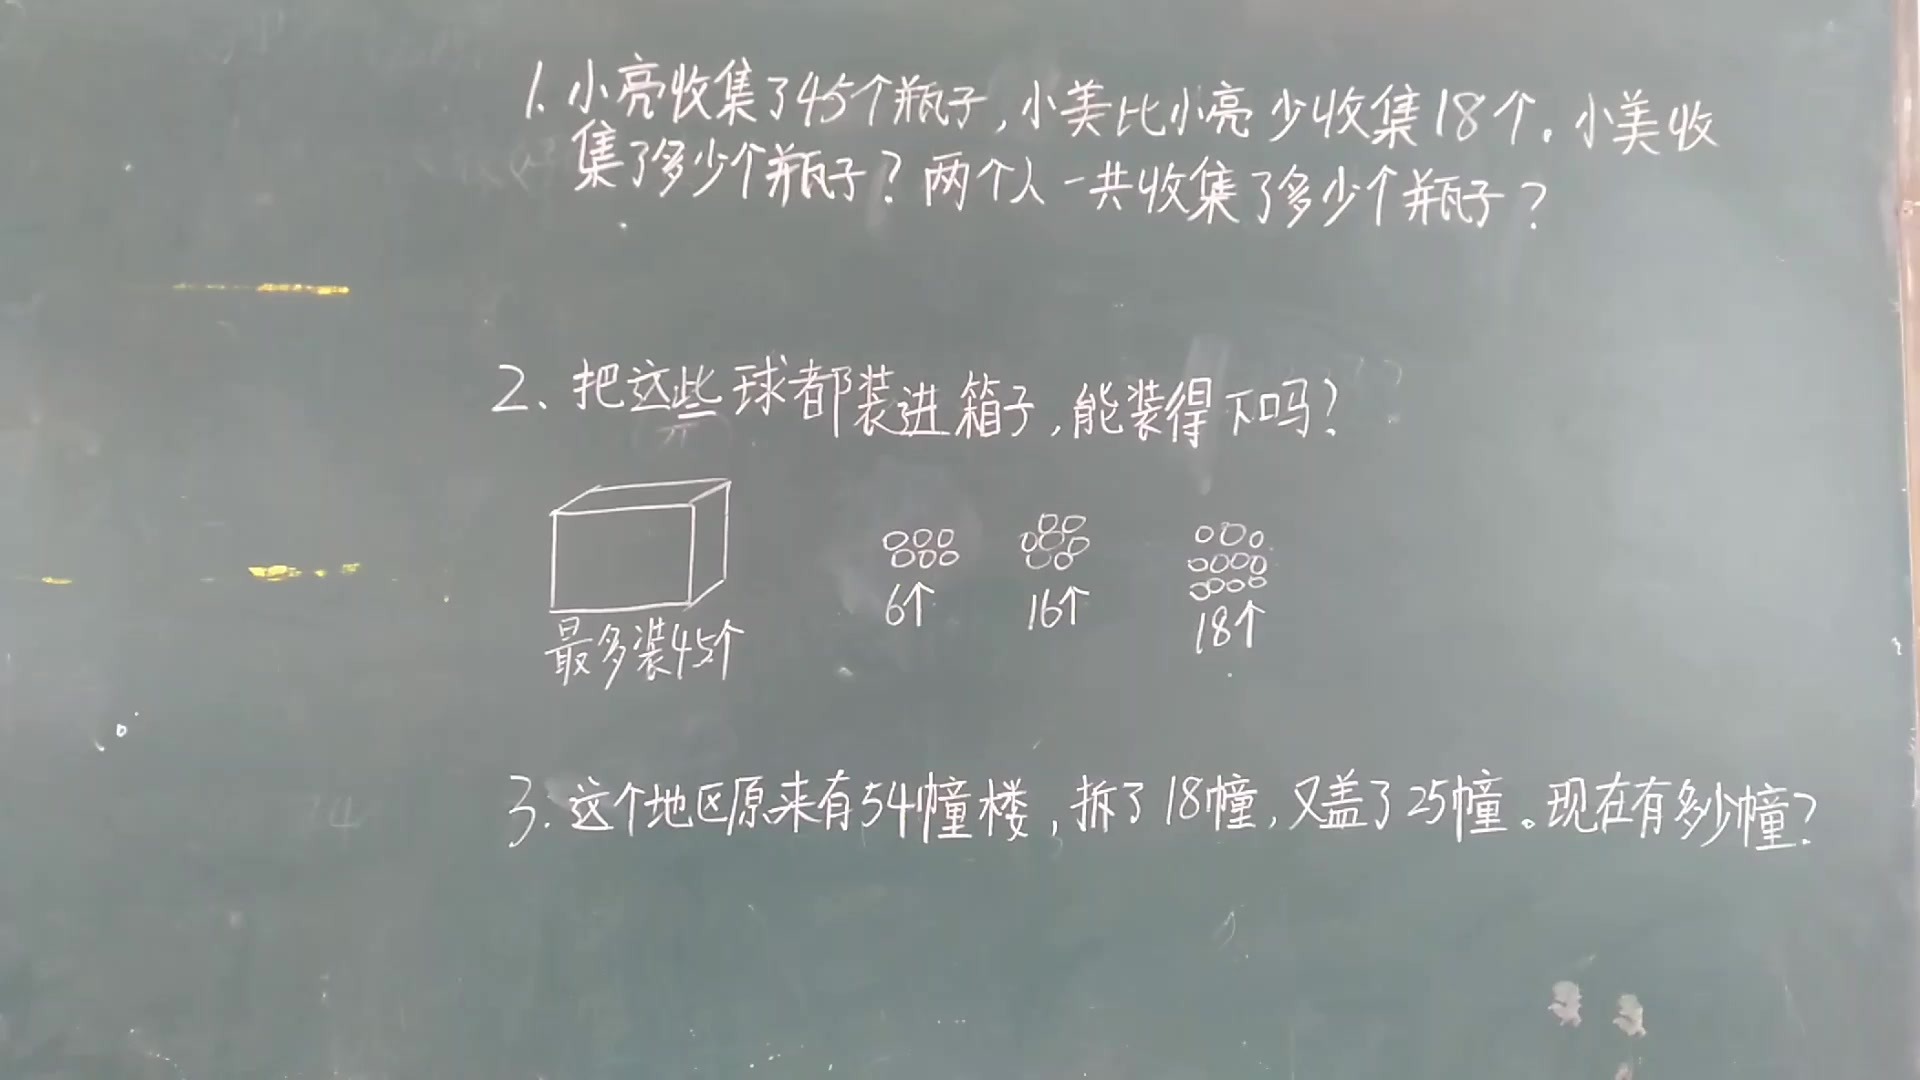 1. 小亮收集了45个瓶子,小美比小亮少收集18个。小美收
集了多少个瓶子?两个人一共收集了多少个瓶子?
2、把这些球都装进箱子,能装得下吗?
6个 16个 18个
最多装45个
3. 这个地区原来有54幢楼,拆了18幢,又盖了25幢。现在有多少幢?